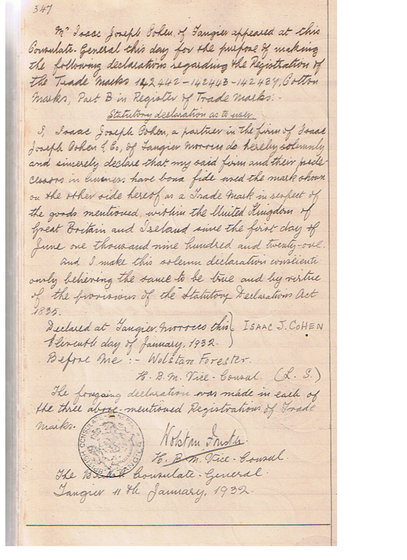 347
Mr Isaac Joseph Cohen of Tangier appeared at this
Consulate-General this day for the purpose of making
the following declarations regarding the Registration of
the Trade Marks 142442-142443-142437, Cotton
Marks, Part B in Register of Trade Marks:-
Statutory declaration as to user.
I, Isaac Joseph Cohen, a partner in the firm of Isaac
Joseph Cohen & Co, of Tangier Morocco do hereby solemnly
and sincerely declare that my said firm and their prede
cessors in business have bona fide used the mark shown
on the other side hereof as a Trade Mark in respect of
the goods mentioned, within the United Kingdom of
Great Britain and Ireland since the first day of
June one thousand nine hundred and twenty-one
and I make this solemn declaration conscienti
ously believing the same to be true and by virtue
of the provisions of the Statutory Declarations Act
1835.
Declared at Tangier Morocco this } ISAAC J. COHEN
Eleventh day of January, 1932.
Before me :- Wolstan Forester.
H. B. M. Vice-Consul (L. S.)
The foregoing declaration was made in each of
the three above-mentioned Registrations of Trade
Marks.
H. B. M. Vice-Consul
The British Consulate-General
Tangier 11th January, 1932